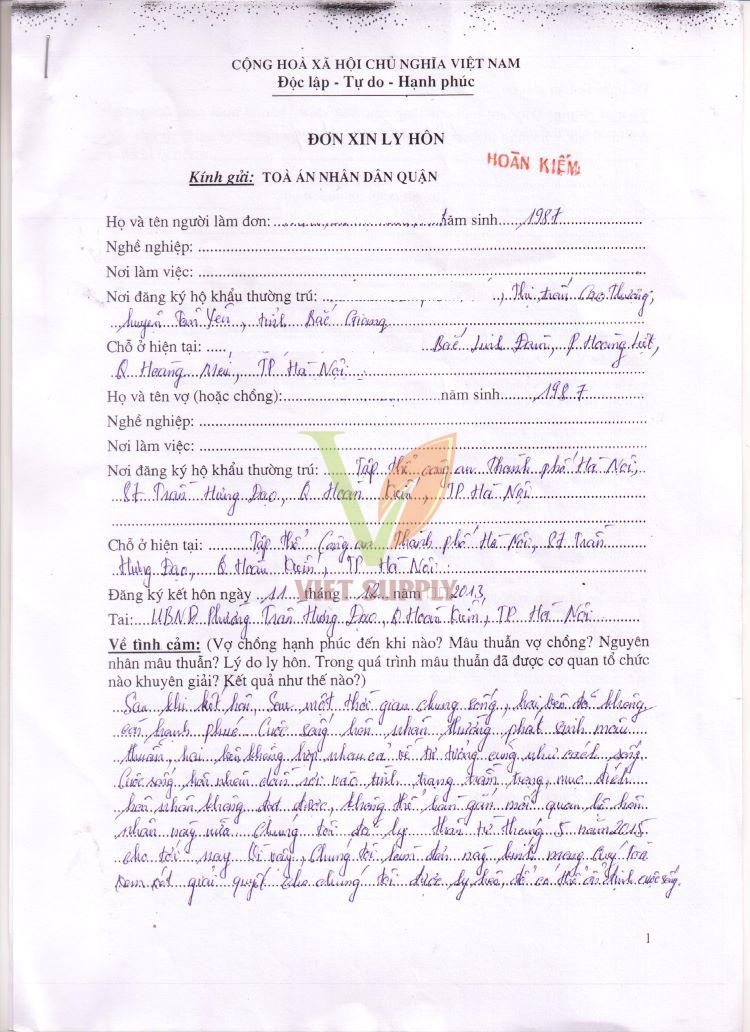 CỘNG HOÀ XÃ HỘI CHỦ NGHĨA VIỆT NAM
Độc lập - Tự do - Hạnh phúc
ĐƠN XIN LY HÔN
Kính gửi: TOÀ ÁN NHÂN DÂN QUẬN HOÀN KIẾM
Họ và tên người làm đơn: năm sinh 1987
Nghề nghiệp:
Nơi làm việc:
Nơi đăng ký hộ khẩu thường trú: , Thị trấn Cao Thượng,
huyện Tân Yên, tỉnh Bắc Giang
Chỗ ở hiện tại: Bắc Linh Đàm, P. Hoàng Liệt,
Q Hoàng Mai, TP Hà Nội
Họ và tên vợ (hoặc chồng): năm sinh 1987
Nghề nghiệp:
Nơi làm việc:
Nơi đăng ký hộ khẩu thường trú: Tập thể công an Thành phố Hà Nội,
Trần Hưng Đạo, Q Hoàn Kiếm, TP Hà Nội
Chỗ ở hiện tại: Tập thể Công an Thành phố Hà Nội, Trần
Hưng Đạo, Q Hoàn Kiếm, TP Hà Nội
VIET SUPPLY
Đăng ký kết hôn ngày 11 tháng 12 năm 2013
Tại: UBND Phường Trần Hưng Đạo, Q Hoàn Kiếm, TP Hà Nội
Về tình cảm: (Vợ chồng hạnh phúc đến khi nào? Mâu thuẫn vợ chồng? Nguyên
nhân mâu thuẫn? Lý do ly hôn. Trong quá trình mâu thuẫn đã được cơ quan tổ chức
nào khuyên giải? Kết quả như thế nào?)
Sau khi kết hôn, Sau một thời gian chung sống, hai bên đã không
còn hạnh phúc. Cuộc sống hôn nhân thường phát sinh mâu
thuẫn, hai bên không hợp nhau cả về tư tưởng cũng như cách sống.
Cuộc sống hôn nhân dần rơi vào tình trạng trầm trọng, mục đích
hôn nhân không đạt được, không thể hàn gắn mối quan hệ hôn
nhân này nữa. Chúng tôi đã ly thân từ tháng 5 năm 2015
cho tới nay. Vì vậy, Chúng tôi làm đơn này kính mong Quý toà
xem xét giải quyết cho chúng tôi được ly hôn, để có thể ổn định cuộc sống.
1